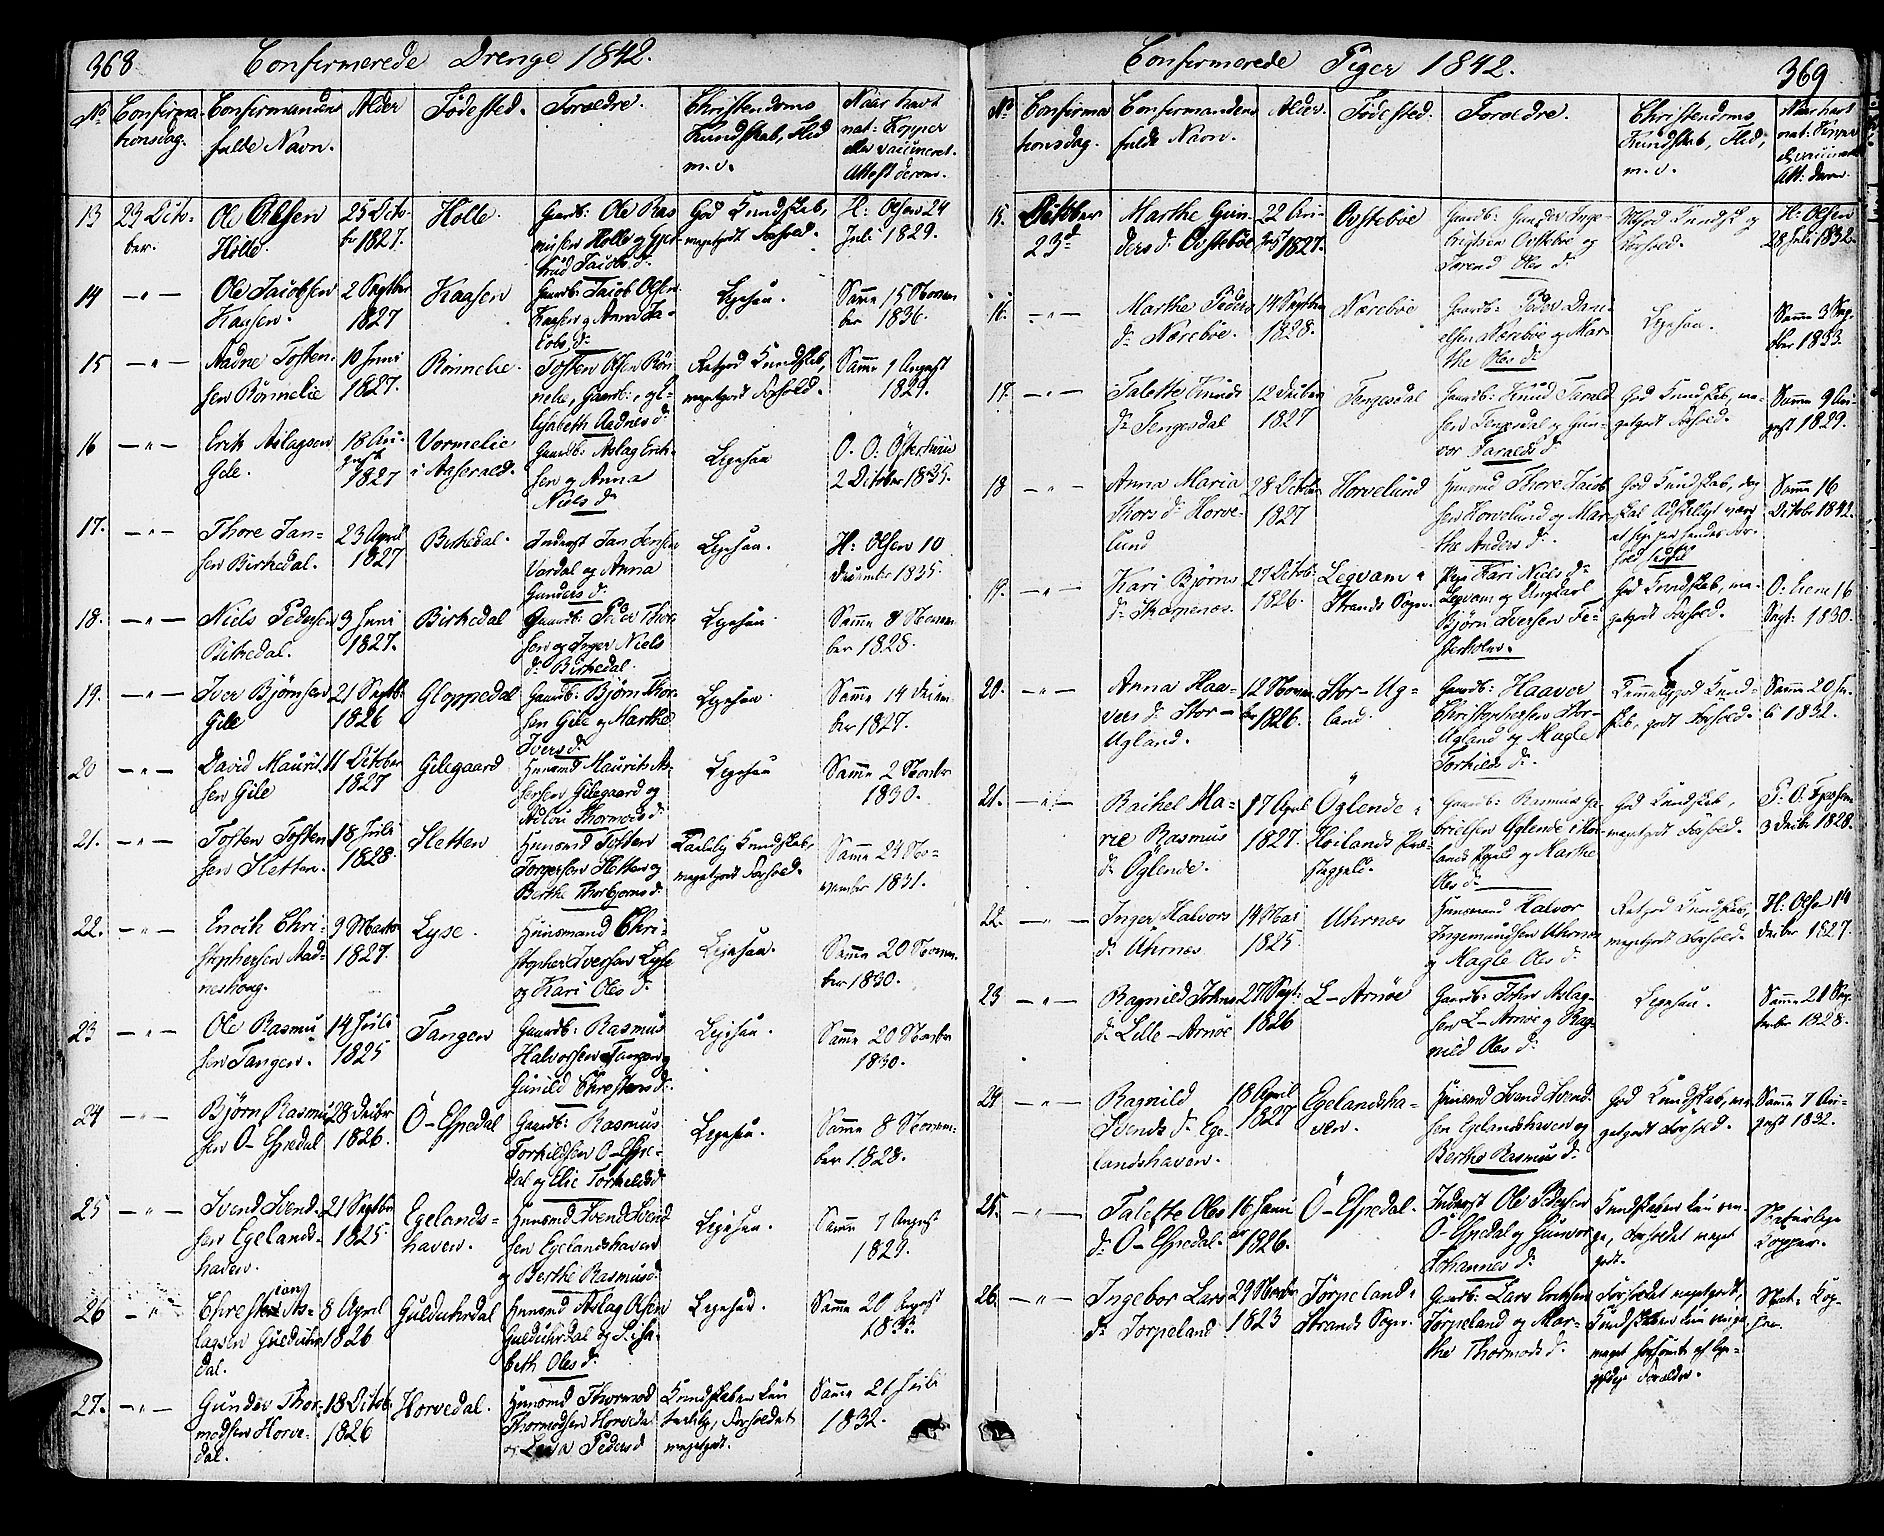 368
Confirmerede Drenge 1842.
No
Confirma-
tionsdag.
Confirmandens
fulde Navn.
Alder
Födested.
Forældre.
Christendoms
Kundskab, Flid
m. v.
Naar havt
nat: Kopper
eller vaccineret.
Attest derom.
13
23 Octo-
ber.
Ole Olsen
Holle.
25 Octo-
br 1827.
Holle.
Gaardb: Ole Ras
musen Holle og Gjer
trud Jacobs d:
God Kundskab,
megetgodt Forhold.
H: Olsen 24
Juli 1829.
14
— " —
Ole Jacobsen
Kaasen.
2 Septbr
1827
Kaasen
Gaardb: Jacob Olsen
Kaasen og Anna Ja-
cobs d:
Ligesaa.
Samme 15 Novem
ber 1836.
15
— " —
Aadne Tosten-
sen Rönnelie
10 Juni
1827.
Rönnelie.
Tosten Olsen Rön
nelie, Gaardb:, og E-
lisabeth Aadnes d:
Retgod Kundskab,
megetgodt Forhold.
Samme 9 August
1829.
16
— " —
Erik Aslagsen
Gile.
18 Au-
gust
1827
Vormelie
i Aaserald.
Gaardb: Aslag Erik-
sen og Anna
Niels d:
Ligesaa
2 October 1835.
17.
— " —
Thore Jan-
sen Birkedal.
23 April
1827
Birkedal.
Inderst Jan Jensen
Vardal og Anna
Gunders d:
Ligesaa.
H: Olsen 10
December 1835.
18.
— " —
Niels Pedersen
Birkedal.
9 Juni
1827.
Birkedal
Gaardb: Peder Thor
sen og Inger Niels
d: Birkedal.
Ligesaa.
Samme 8 Novem
ber 1828.
19.
— " —
Iver Bjørnsen
Gile
21 Septb:
1826
Gloppedal
Gaardb: Bjørn Thor-
sen Gile og Marthe
Ivers d:
Ligesaa.
Samme 14 Decem
ber 1827.
20
— " —
David Maurit-
sen Gile
11 October
1827
Gilegaard
Huusmd Maurits As-
sersen Gilegaard og
Thormods d:
Ligesaa
Samme 2 Novbr
1830.
21.
— " —
Tosten Tosten
sen Sletten.
18 Juli
1828.
Sletten
Huusmd Tosten
Torgersen Sletten og
Berthe Thorbjørns d:
Taalelig Kundskab,
megetgodt Forhold.
Samme 24 No-
vember 1831.
22.
— " —
Enoch Chri-
stophersen Aad-
neshoug.
9 Marts
1827.
Lyse.
Huusmand Chri-
stopher Iversen Lyse
og Kari Oles d:
Ligesaa.
Samme 20 Novem-
ber 1830.
23
— " —
Ole Rasmu-
sen Tangen.
14 Juli
1825
Tangen
Gaardb: Rasmus
Halvorsen Tangen og
Gunild Christens d:
Ligesaa.
Samme 20 Novbr
1830.
24
— " —
Bjørn Rasmu
sen Ö-Espedal
28 Decbr
1826.
Ö-Espedal
Gaardb: Rasmus
Torkildsen Ö-Espe-
dal og Elie Torkilds d:
Ligesaa.
Samme 8 Novem-
ber 1828.
25
— " —
Svend Svend-
sen Egelands-
haven.
21 Septbr
1825
Egelands-
haven.
Huusmd Svend Svend
sen Egelandshaven
og Berthe Rasmus d:
Ligesaa.
Samme 7 August
1829.
26
— " —
As-
lagsen Gulduhr
dal.
8 April
1826
Guldurdal
Huusmd Aslag Olsen
Guldurdal og Elisa-
beth Oles d:
Ligesaa.
Samme 20 August
27.
— " —
Gunder Thor-
modsen Horve-
dal.
18 Octob:
1826
Horvedal.
Huusmd Thormod
Thormodsen Horvedal
og Peders d
Kundskaben kun
taalelig, Forholdet
megetgodt.
Samme 21 Juli
1832.
Confirmerede Piger 1842.
369
No
Confirma
tionsdag.
Confirmandens
fulde Navn.
Alder.
Födested.
Forældre.
Christendoms
Kundskab, Flid,
m. v.
Naar havt
nat: Kopper
el. vaccineret
Att: derom.
15.
October
23d
Marthe Gun-
ders d: Ovstebøe
22 Au-
gust 1827.
Ovstebøe
Gaardb: Gunder Inge-
brigtsen Ovstebøe og
Torend Oles d:
Mgod Kundsk. og
Forhold.
H: Olsen
28 Juli 1832.
16.
— " —
Marthe Peders
d: Nærebøe.
14 Septbr
1828.
Nærebøe
Gaardb: Peder Dani-
elsen Nærebøe og Mar-
the Oles d:
Ligesaa.
Samme 3 Sep-
tbr 1833.
17.
— " —
Talette Knuds
d: Tengesdal
12 Decbr
1827
Tengesdal
Gaardb: Knud Tarald
sen Tengesdal og Gun-
vor Taralds d:
God Kundskab, me-
getgodt Forhold.
Samme 9 Au-
gust 1829.
18
— " —
Anna Maria
Thors d: Horve-
lund
28 Octbr
1827
Horvelund
Huusmd Thore Jacob
sen Horvelund og Mar-
the Anders d:
God Kundskab,
Samme 16
Octobr 1842.
19.
— " —
Kari Bjørns
d: Skarpenæs.
27 Octob:
1826.
Legvam i
Strands Sogn.
Pige Kari Niels d:
Legvam og Ungkarl
Bjørn Iversen Fe-
God Kundskab, me-
getgodt Forhold.
Sept: 1830.
20.
— " —
Anna Haa-
vers d: Stor-
Ugland.
12 Novem
br 1826.
Stor-Ug-
land.
Gaardb: Haaver
Christophersen Stor-
Ugland og Magle
Torkilds d:
Temmeliggod Kund-
skab, godt Forhold.
Samme 20 Ju-
li 1832.
21.
— " —
Rachel Ma-
rie Rasmus
d: Öglende.
17 April
1827.
Öglende i
Höilands Præ-
stegjeld.
Gaardb: Rasmus Ga-
brielsen Öglende i Höi-
lands Pgjeld og Marthe
Oles d:
God Kundskab,
megetgodt Forhold.
3 Decbr 1828.
22.
— " —
Inger Halvors
d: Uhrnæs
14 Mai
1825
Uhrnæs
Huusmand Halvor
Ingemundsen Uhrnæs
og Magle Oles d:
Retgod Kundskab,
megetgodt Forhold.
H: Olsen 14
Decbr 1827.
23
— " —
Ragnild Johns
d: Lille-Arnöe
27 Sept:
1826
L-Arnöe
Gaardb: John Aslag-
sen L-Arnöe og Rag-
nild Oles d:
Ligesaa.
Samme 21 Sep-
tember 1828.
24
— " —
Ragnild
Svends d: Ege-
landshaven.
18 April
1827
Egelandsha-
ven.
Huusmd Svend Svend-
sen Egelandshaven og
Berthe Rasmus d:
God Kundskab, me-
getgodt Forhold.
Samme 7 Au-
gust 1832.
25.
— " —
Talette Oles
d: Ö-Espedal.
16 Janu
ar 1826.
Ö-Espedal.
Inderst Ole Pedersen
Ö-Espedal og Gunvor
Johannes d:
Kundskaben kun rin-
ge, Forholdet meget
godt.
Naturlige
Kopper.
26.
— " —
Ingebor Lars
d: Jorpeland
29 Novbr
1823
Jørpeland i
Strands Sogn.
Gaardb: Lars Eriksen
Jørpeland og Mar-
the Thormods d:
Forholdet megetgodt,
Kundskaben kun ringe
meget forsömt af lige-
gyldige Forældre.
Nat: Kop-
per.